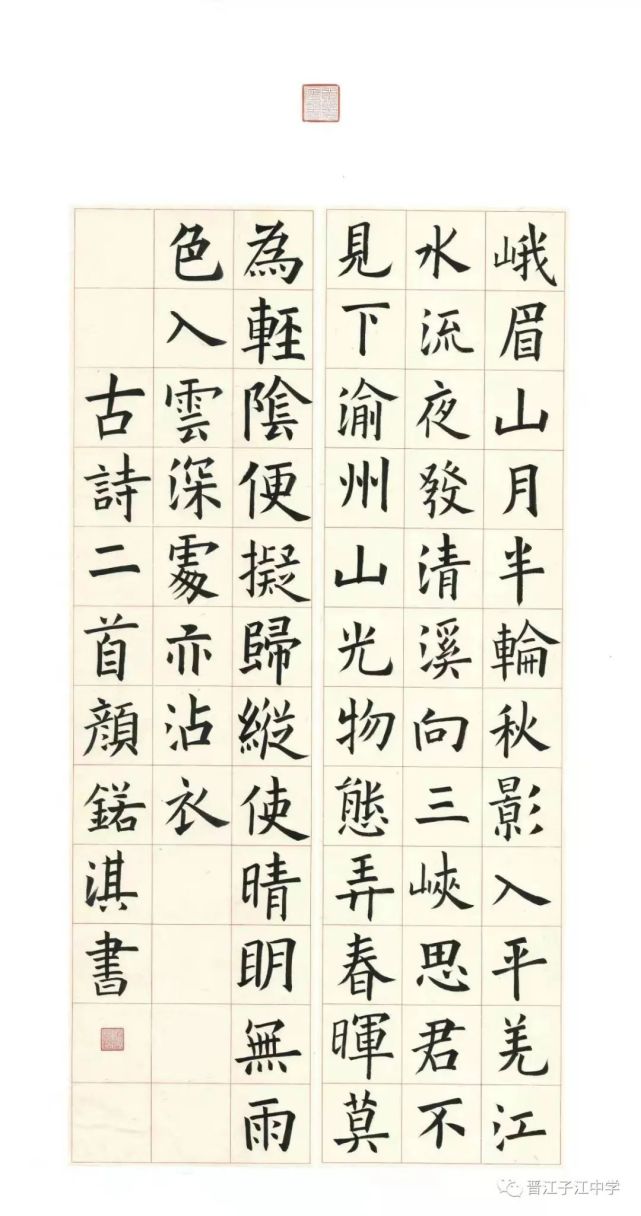 峨眉山月半輪秋影入平羌江
水流夜發清溪向三峽思君不
見下渝州山光物態弄春暉莫
為輕陰便擬歸縱使晴明無雨
色入雲深處亦沾衣
古詩二首顏鍩淇書
晋江子江中学